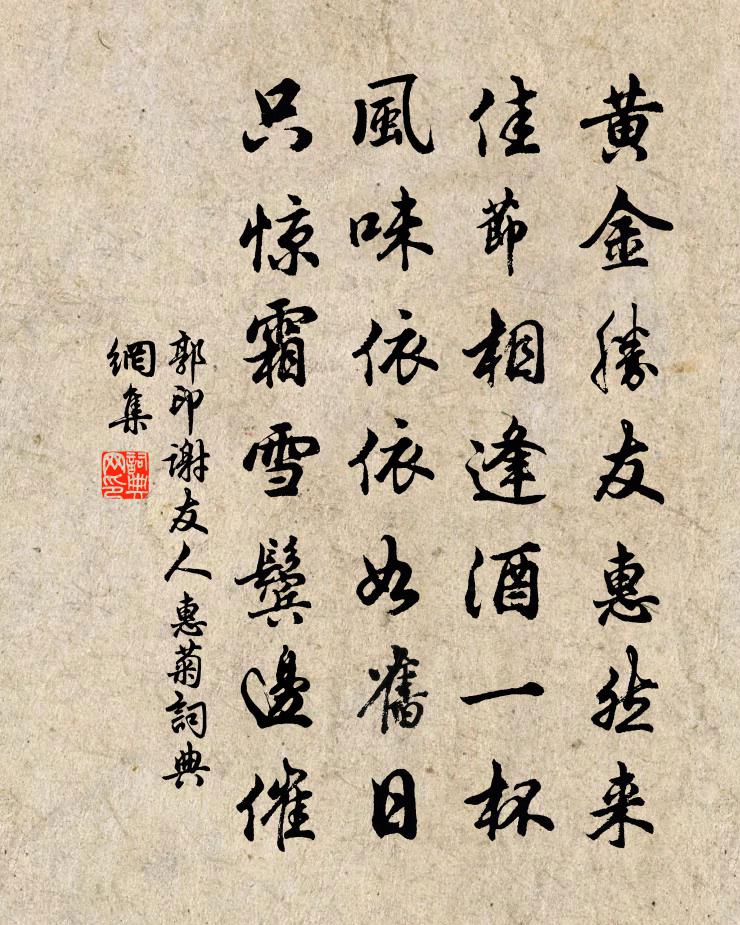 黄金勝友惠然来
佳節相逢酒一杯
風味依依如舊日
只惊霜雪鬓邊催
郭印谢友人惠菊詞典
網集
詞典
网印